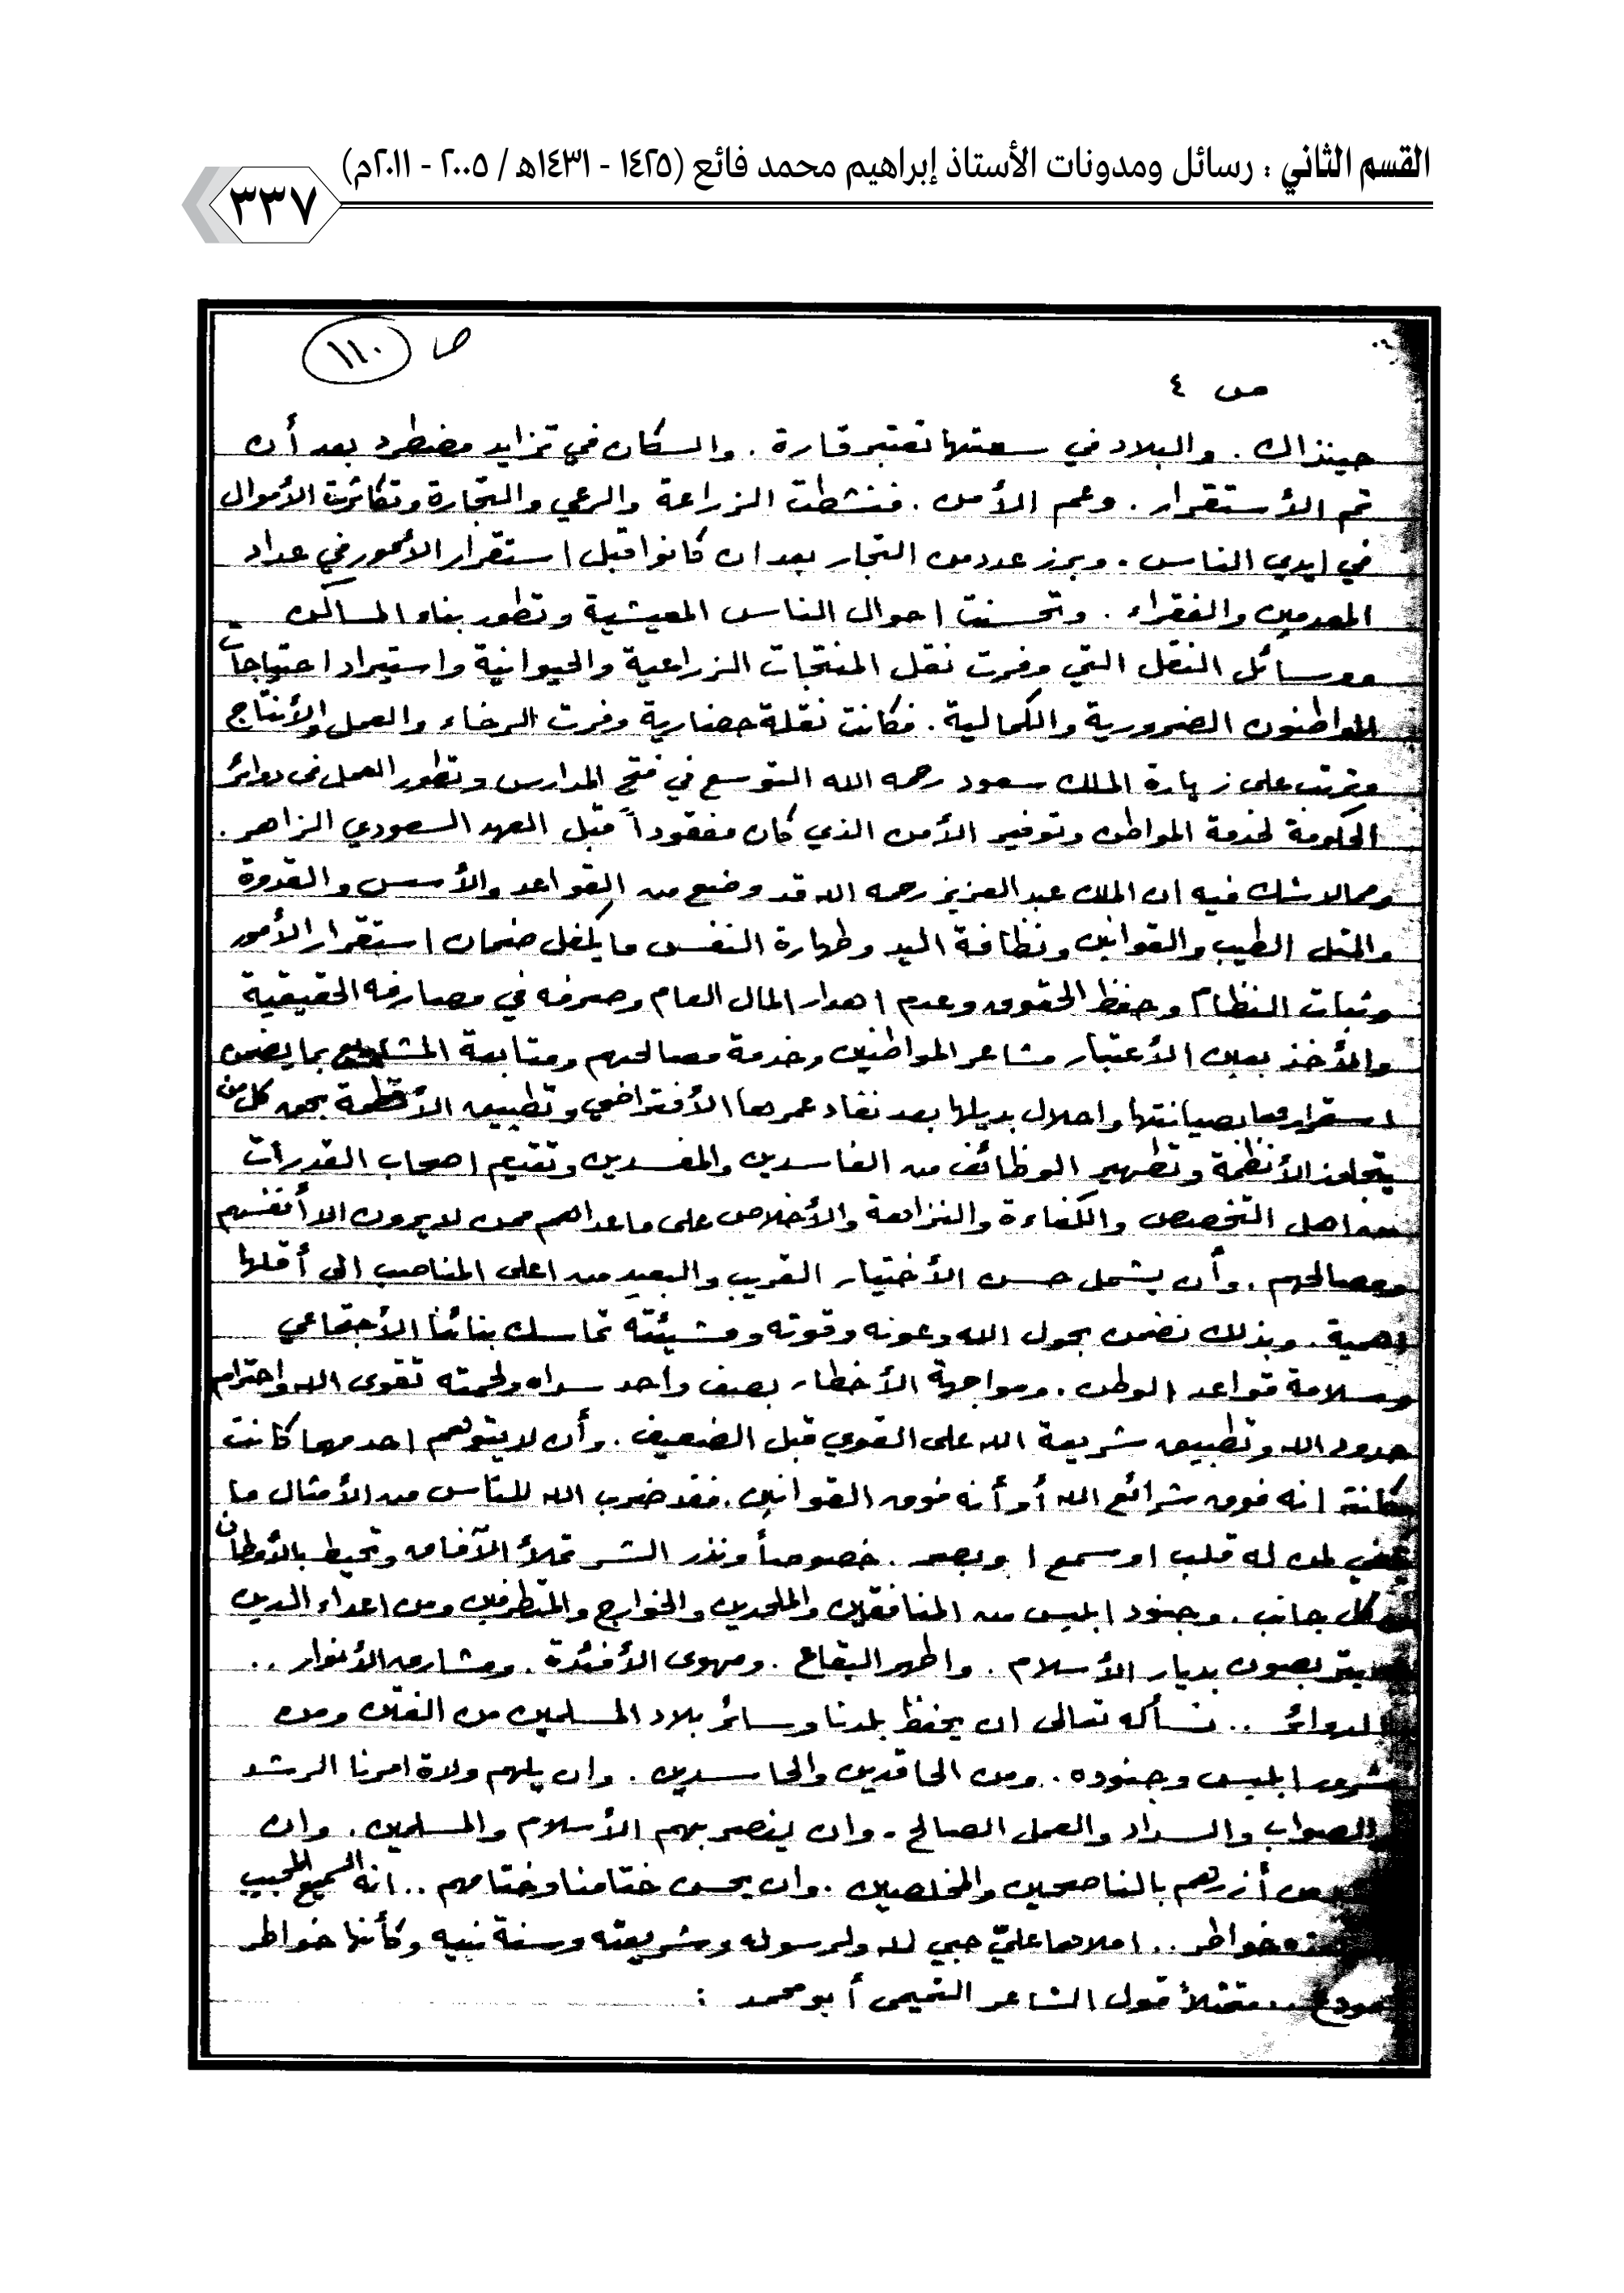 القسم الثاني : رسائل ومدونات الأستاذ إبراهيم محمد فائع (١٤٢٥ - ١٤٣١هـ / ٢٠٠٥ - ٢٠١١م)
٣٣٧
ص ١١٠
ص ٤
حينذاك . والبلاد في سعتها تعتبر قارة . والسكان في تزايد مضطرد بعد أن
تم الأستقرار . وعم الأمن . فنشطت الزراعة والرعي والتجارة وتكاثرت الأموال
في ايدي الناس . وبرز عدد من التجار بعد ان كانوا قبل استقرار الأمور في عداد
المعدمين والفقراء . وتحسنت احوال الناس المعيشية وتطور بناء المساكن
ووسائل النقل التي وفرت نقل المنتجات الزراعية والحيوانية واستيراد احتياجات
المواطنون الضرورية والكمالية . فكانت نقلة حضارية وفرت الرخاء والعمل والأنتاج
وترتب على زيارة الملك سعود رحمه الله التوسع في فتح المدارس وتطور العمل في دوائر
الحكومة لخدمة المواطن وتوفير الأمن الذي كان مفقوداً قبل العهد السعودي الزاهر .
ومما لاشك فيه ان الملك عبد العزيز رحمه الله قد وضع من القواعد والأسس والقدوة
والمثل الطيب والقوانين ونظافة اليد وطهارة النفس ما يكفل ضمان استقرار الأمور
وثبات النظام وحفظ الحقوق وعدم اهدار المال العام وصرفه في مصارفه الحقيقية
والأخذ بعين الأعتبار مشاعر المواطنين وخدمة مصالحهم ومتابعة المشاريع بما يضمن
استمرارها بصيانتها واحلال بديلها بعد نفاد عمرها الأفتراضي وتطبيق الأنظمة بحق كل من
يتجاوز الأنظمة وتطهير الوظائف من الفاسدين والمفسدين وتقديم اصحاب القدرات
من اهل التخصص والكفاءة والنزاهة والأخلاص على ماعداهم ممن لايرون الا أنفسهم
ومصالحهم . وأن يشمل حسن الأختيار القريب والبعيد من اعلى المناصب الى أقلها
اهمية . وبذلك نضمن بحول الله وعونه وقوته ومشيئته تماسك بنائنا الأجتماعي
وسلامة قواعد الوطن . ومواجهة الأخطار بصف واحد سداه ولحمته تقوى الله واحترام
حدود الله وتطبيق شريعة الله على القوي قبل الضعيف . وأن لايتوهم احد مهما كانت
مكانته انه فوق شرائع الله أو أنه فوق القوانين . فقد ضرب الله للناس من الأمثال ما
يكفي لمن له قلب او سمع او بصر . خصوصاً ونذر الشر تملأ الآفاق وتحيط بالأوطان
من كل جانب . وجنود ابليس من المنافقين والملحدين والخوارج والمتطرفين ومن اعداء الدين
يتربصون بديار الأسلام . واطهر البقاع . ومهوى الأفئدة . ومشارق الأنوار ..
الدوائر .. نسأله تعالى ان يحفظ بلدنا وسائر بلاد المسلمين من الفتن ومن
شرور ابليس وجنوده . ومن الحاقدين والحاسدين . وان يلهم ولاة امرنا الرشد
والصواب والسداد والعمل الصالح . وان ينصر بهم الأسلام والمسلمين . وان
أزرهم بالناصحين والمخلصين . وان يحسن ختامنا وختامهم .. انه السميع المجيب
هذه خواطر .. املاها عليّ حبي لله ولرسوله وشريعته وسنة نبيه وكأنها خواطر
مودع .. متمثلاً قول الشاعر التميمى أبو محمد :